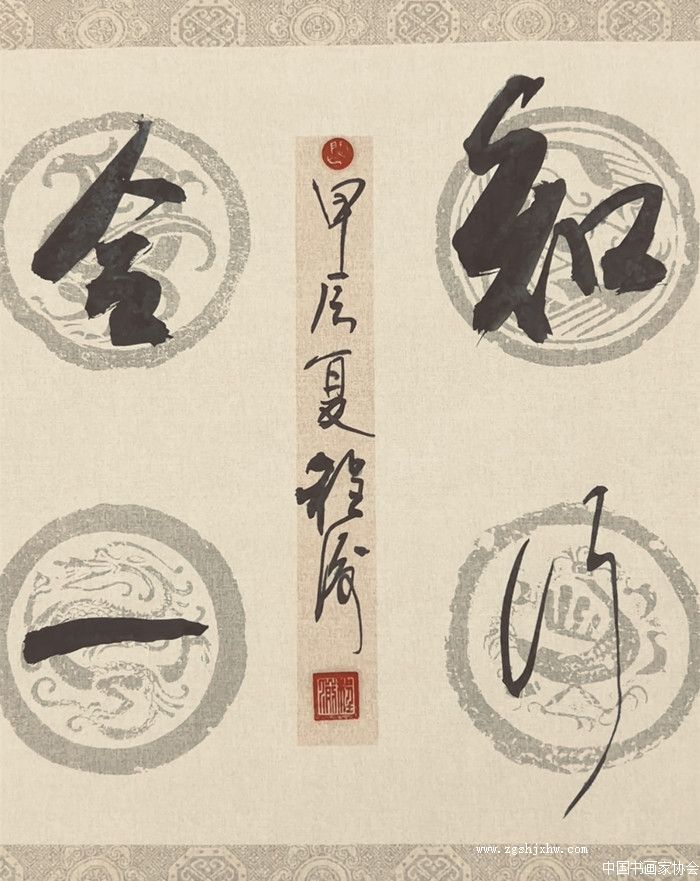 知行
合一
甲辰夏程
www.zgshjxhw.com
中国书画家协会